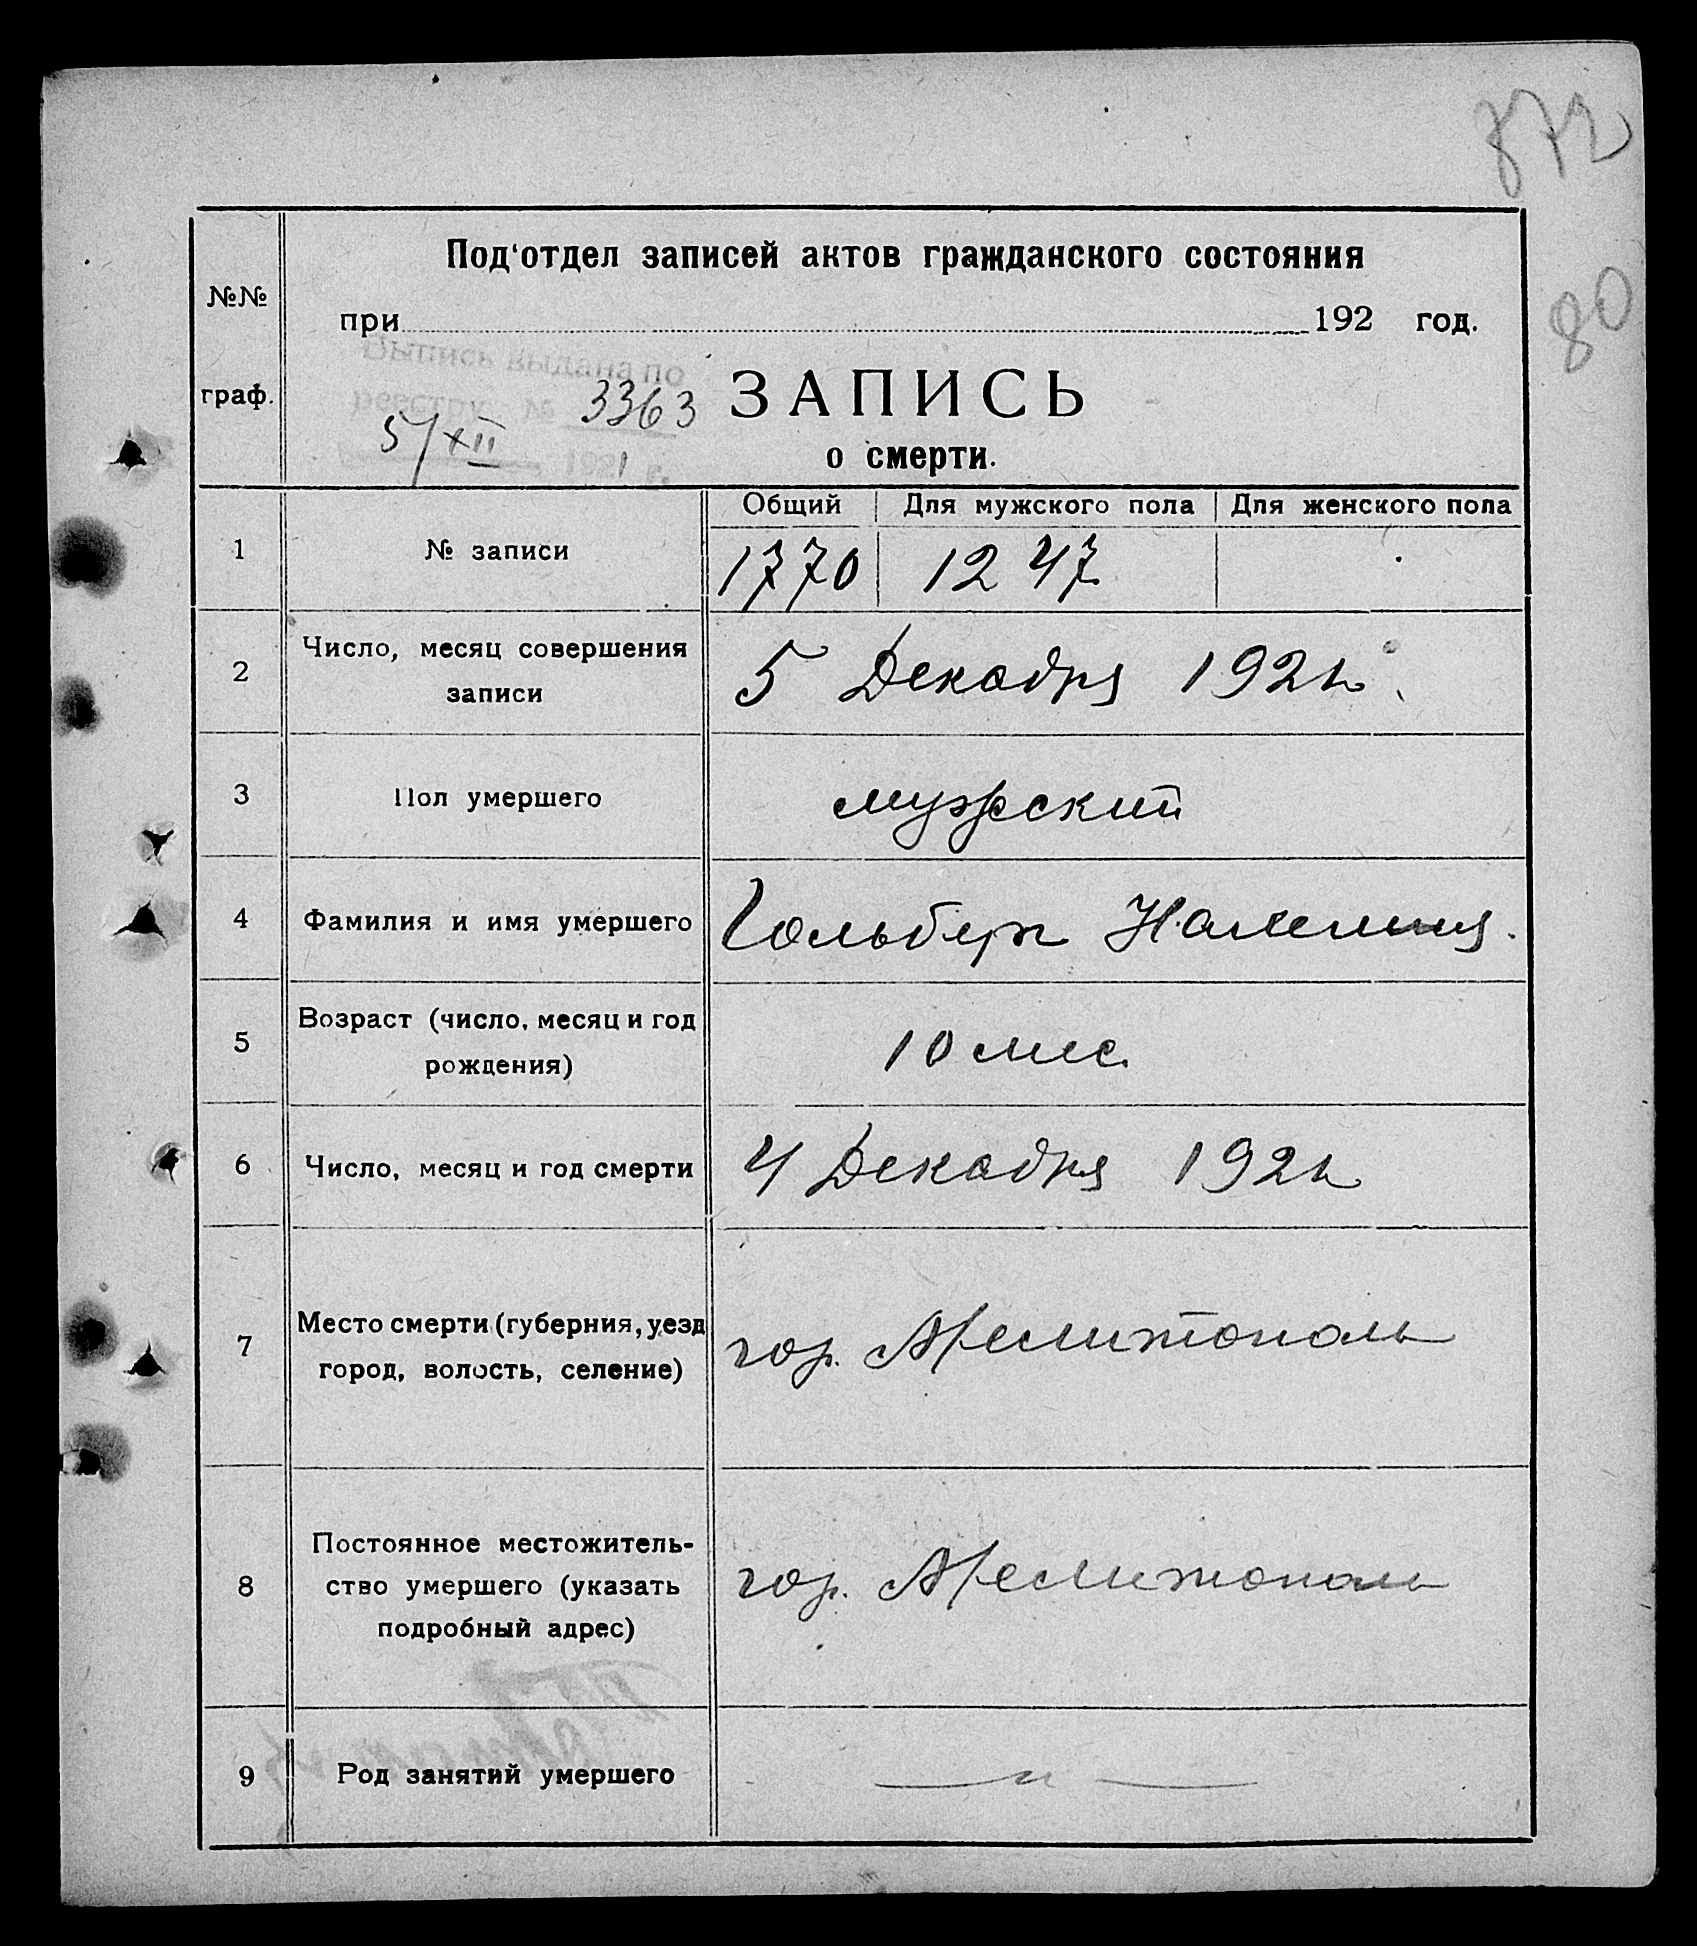 872
80
Под'отдел записей актов гражданского состояния
№№
при 192 год.
Выпись выдана по
граф.
реестру № 3363
ЗАПИСЬ
5/XII 1921 г.
о смерти.
Общий Для мужского пола Для женского пола
1 № записи 1770 1247
2 Число, месяц совершения
записи
5 Декабря 1921г.
3 Пол умершего мужский
4 Фамилия и имя умершего Гольберг
5 Возраст (число, месяц и год
рождения)
10 мес.
6 Число, месяц и год смерти 4 Декабря 1921г
7 Место смерти (губерния, уезд
город, волость, селение)
гор. Мелитополь
8 Постоянное местожитель-
ство умершего (указать
подробный адрес)
гор. Мелитополь
9 Род занятий умершего — „ —